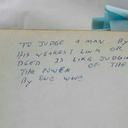 TO JUDGE A MAN BY
HIS WEAKEST LINK OR
DEED IS LIKE JUDGING
THE POWER OF THE
BY ONE WHO